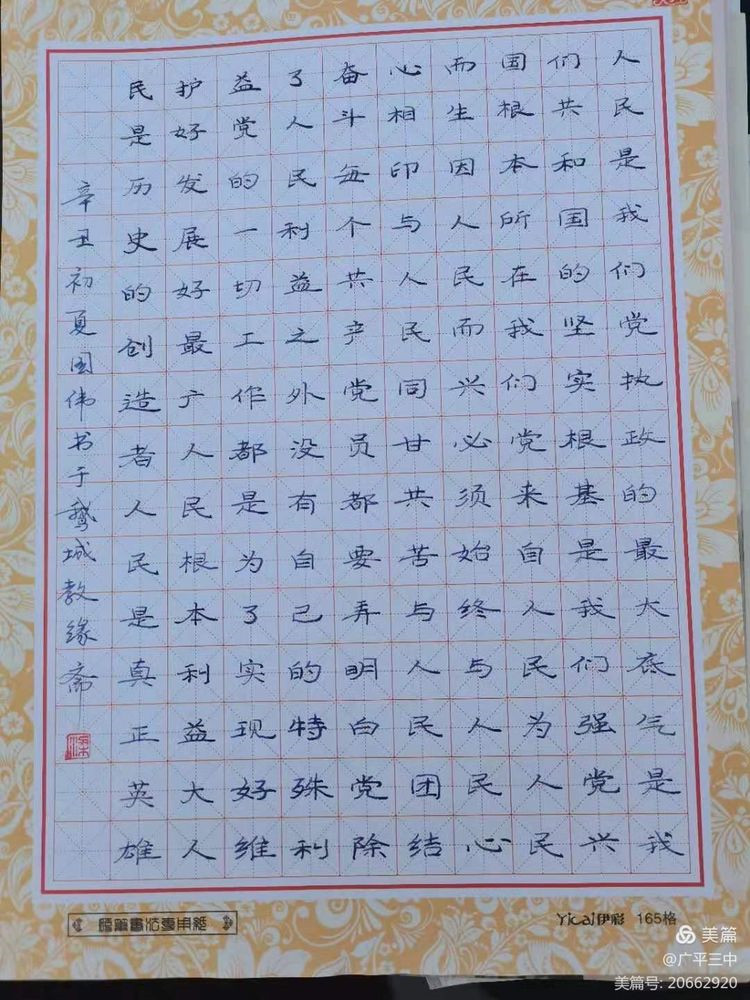 人民是我们党执政的最大底气是我
们共和国的坚实根基是我们强党兴
国根本所在我们党来自人民为人民
而生因人民而兴必须始终与人民心
心相印与人民同甘共苦与人民团结
奋斗每个共产党员都要弄明白党除
了人民利益之外没有自己的特殊利
益党的一切工作都是为了实现好维
护好发展好最广人民根本利益大人
民是历史的创造者人民是真正英雄
辛丑初夏国伟书于鹅城教缘斋
硬筆書法專用紙
Yicai伊彩 165格
美篇
@广平三中
美篇号: 20662920